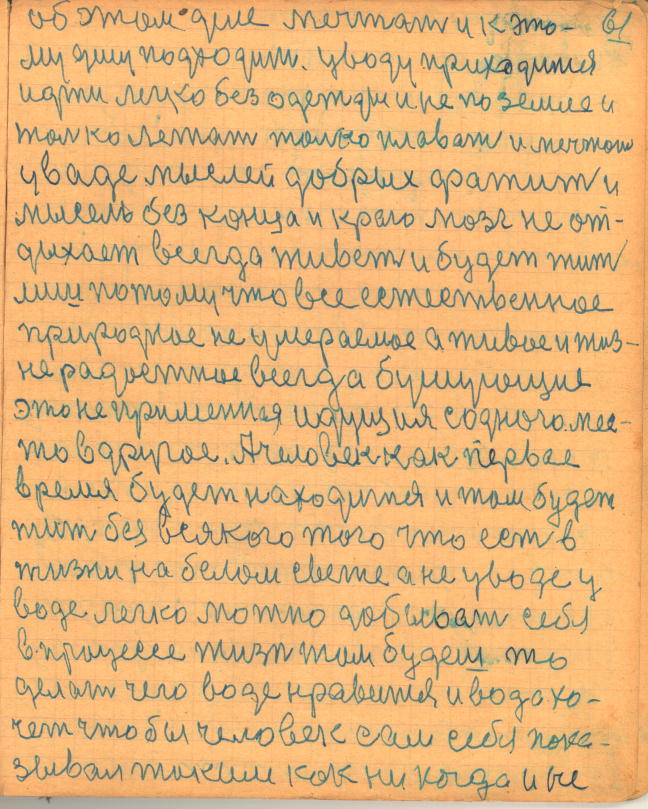 об этом деле мечтат и к это- 61
му делу подходит. уводу приходится
идти легко без одежды и не по земле и
толко летат толко плават и мечтат
уваде мыслей добрых фатит и
мысель без конца и краю мозг не от-
дыхает всегда живет и будет жит
мии потому что все естественное
природное не умераемое а живое и жиз-
нерадостное всегда бушующие
это не применная идущия содного мес-
то в другое. А человек как первае
время будет находится и там будет
жит без всякого того что ест в
жизни на белом свете а не уводе у
воде легко можно добыват себя
в процессе жизн там будеш то
делат чего воде нравится и вода хо-
чет чтобы человек сам себя пока-
зывал таким как никогда и не